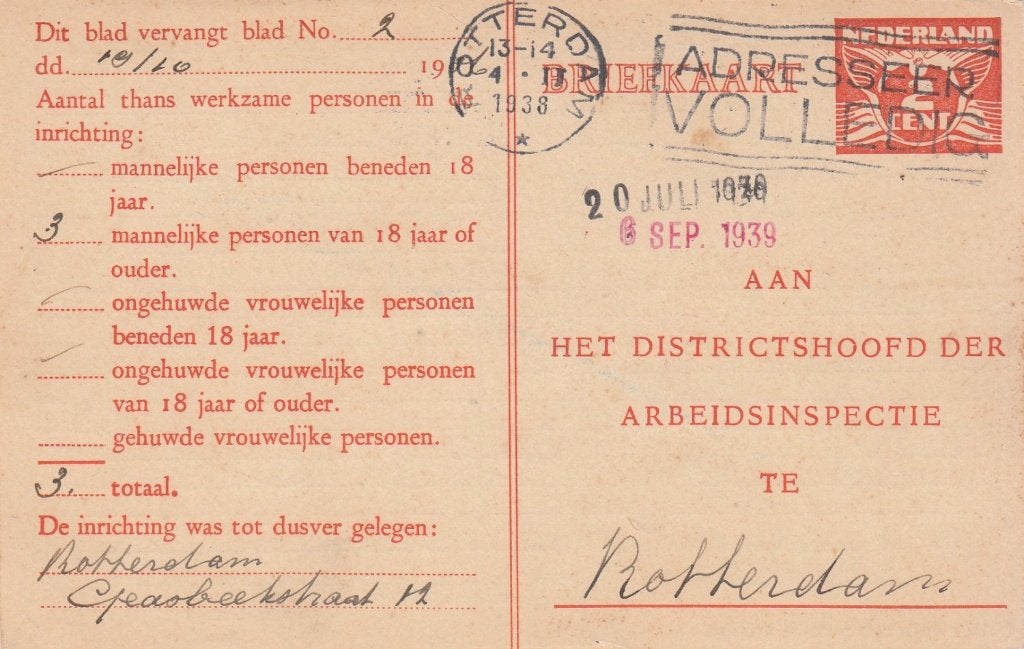 Dit blad vervangt blad No. 2
dd. 19/10 19
Aantal thans werkzame personen in de
inrichting:
mannelijke personen beneden 18
jaar.
3 mannelijke personen van 18 jaar of
ouder.
ongehuwde vrouwelijke personen
beneden 18 jaar.
ongehuwde vrouwelijke personen
van 18 jaar of ouder.
gehuwde vrouwelijke personen.
3. totaal.
De inrichting was tot dusver gelegen:
Rotterdam
12
ROTTERDAM
13-14
1938
BRIEFKAART
ADRESSEER
VOLLEDIG
NEDERLAND
2
CENT
20 JULI
6 SEP. 1939
AAN
HET DISTRICTSHOOFD DER
ARBEIDSINSPECTIE
TE
Rotterdam